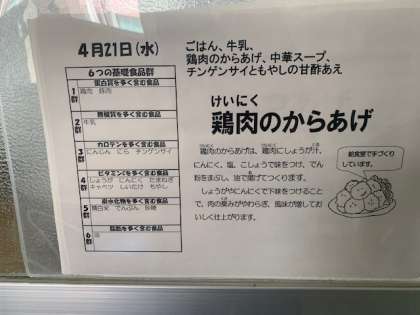 4月21日(水)
6つの基礎食品群
蛋白質を多く含む食品
1群 鶏肉 豚肉
無機質を多く含む食品
2群 牛乳
カロテンを多く含む食品
3群 にんじん にら チンゲンサイ
ビタミンCを多く含む食品
4群 しょうが にんにく たまねぎ
キャベツ しいたけ もやし
炭水化物を多く含む食品
5群 精白米 でんぷん 砂糖
脂肪を多く含む食品
6群 油
ごはん、牛乳、
鶏肉のからあげ、中華スープ、
チンゲンサイともやしの甘酢あえ
けいにく
鶏肉のからあげ
鶏肉のからあげは、鶏肉にしょうが汁、
にんにく、塩、こしょうで味をつけ、でん
粉をまぶし、油で揚げてつくります。
しょうがやにんにくで下味をつけること
で、肉の臭みがやわらぎ、風味が増してお
いしく仕上がります。
給食室で手づくり
しています。